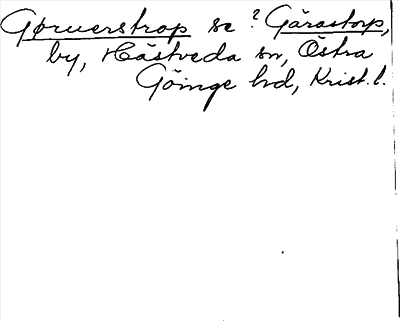 Gøruerstrop se ? Gärastorp,
by, Hästveda sn, Östra
Göinge hd, Krist. l.